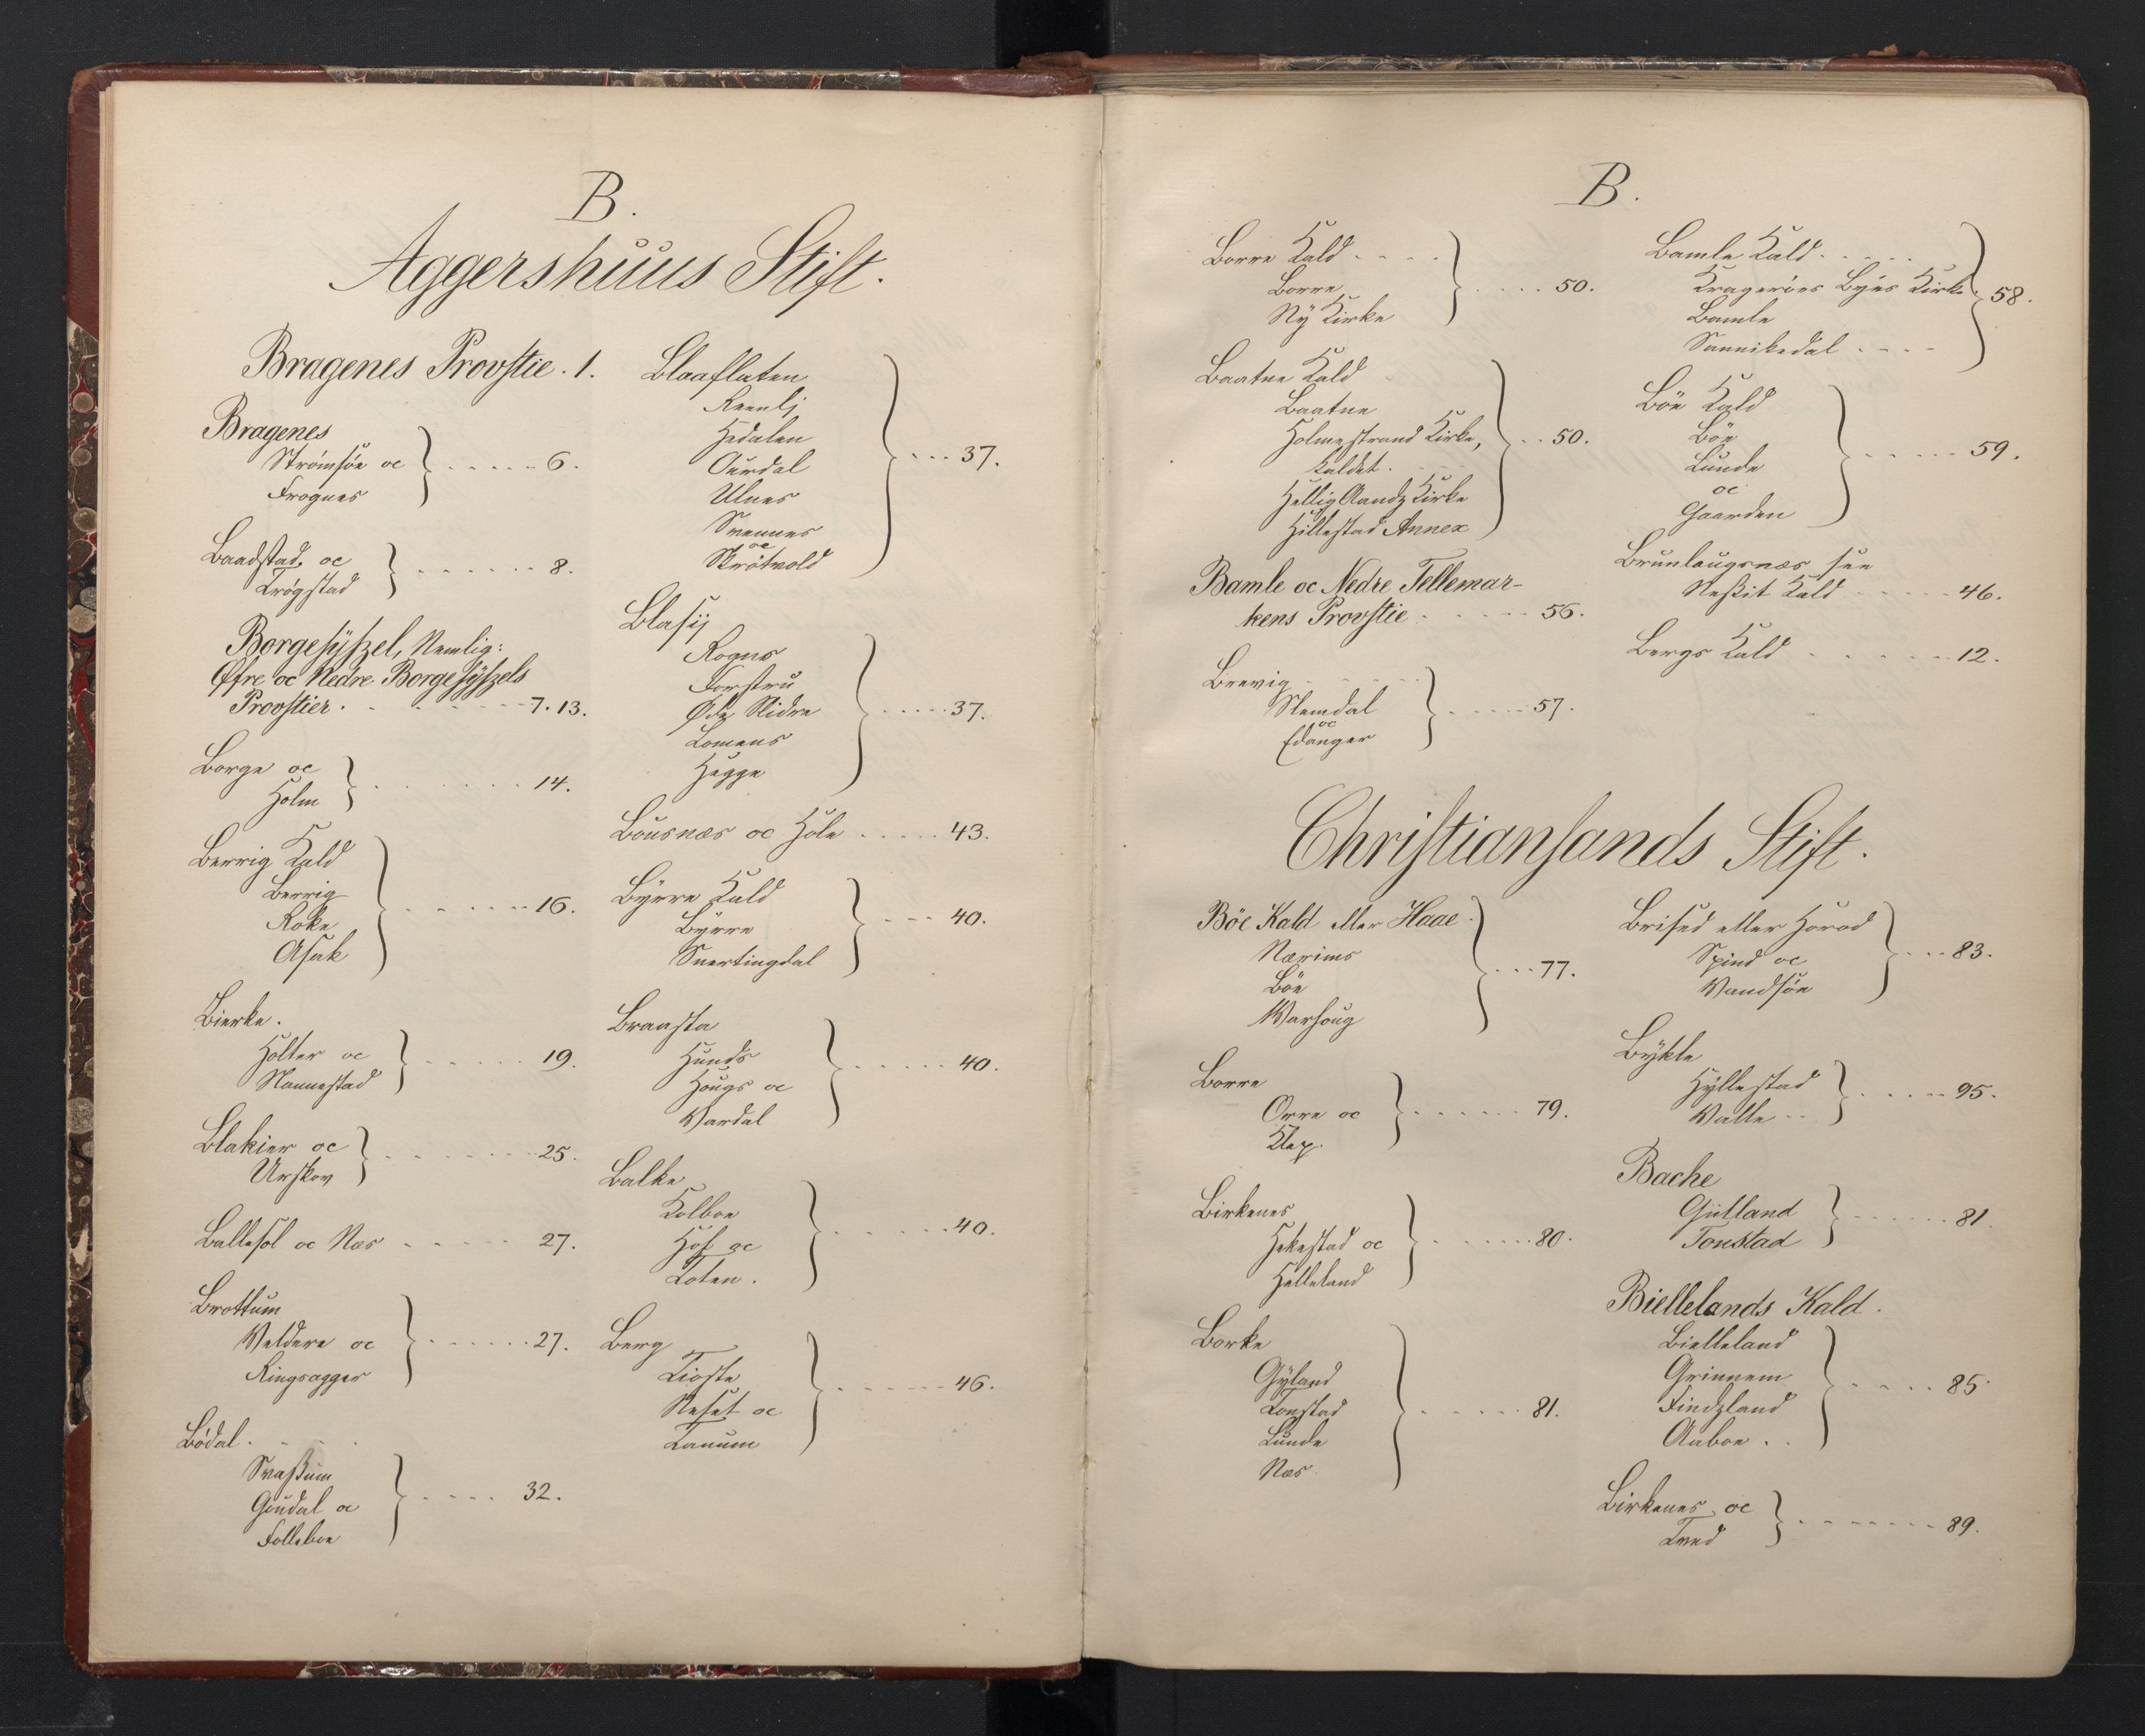 B.
Aggershuus Stift.
Bragenes Provstie. 1.
Bragenes
Strömsöe oc
Frognes
6.
Baadstad oc
Trögstad
8.
Borgesyszel, Nemlig:
Öfre oc Nedre Borgesyszels
Provstier. 7. 13.
Borge oc
Holm
14.
Berrig Kald
Berrig
Roke
Asak
16.
Bierke.
Holter oc
Nannestad
19.
Blakier oc
Urskov
25.
Ballesol oc Næs 27.
Brottum
Veldere oc
Ringsagger
27.
Bödal.
Svatzum
Gaudal oc
Folleboe
32.
Blaaflaten
Reenli
Hedalen
Aurdal
Ulnes
Svennes
oc
Skrötvold
37.
Blasij
Rogns
Forstru
Öde Slidre
Lomens
Hegge
37.
Bousnæs oc Hole 43.
Byrre Kald
Byrre
Snertingdal
40.
Braasta
Hunds
Hougs oc
Vardal
40.
Balke
Kolboe
Hof oc
Toten.
40.
Berg
Tiøste
Neset oc
Tanum
46.
B.
Borre Kald
Borre
Ny Kirke
50.
Baatne Kald
Baatne
Holmestrand Kirke,
kaldet.
Hellig Aandz Kirke
Hillestad Annex
50.
Bamle oc Nedre Tellemar-
kens Provstie 56.
Brevig
Slemdal
oc
Edanger
57.
Bamle Kald
Krageröes Byes Kirke
Bamle
Sannikedal
58.
Böe Kald
Böe
Lunde
oc
Gaarden
59.
Brunlaugsnæs see
Neskit Kald 46.
Bergs Kald 12.
Christiansands Stift.
Böe Kald eller Haae
Nærims
Böe
Varhoug
77.
Borre
Orre oc
Klep.
79.
Birkenes
Hekestad oc
Helleland
80.
Borke
Gyland
Tonstad
Lunde
Næs
81.
Brised eller Horod
Spind oc
Vandsöe
83.
Bykle
Hyllestad
Valle
95.
Bache
Gülland
Tonstad
81
Biellelands Kald.
Bielleland
Grinnem
Findzland
Aaboe
85
Birkenes oc
Tved
89.